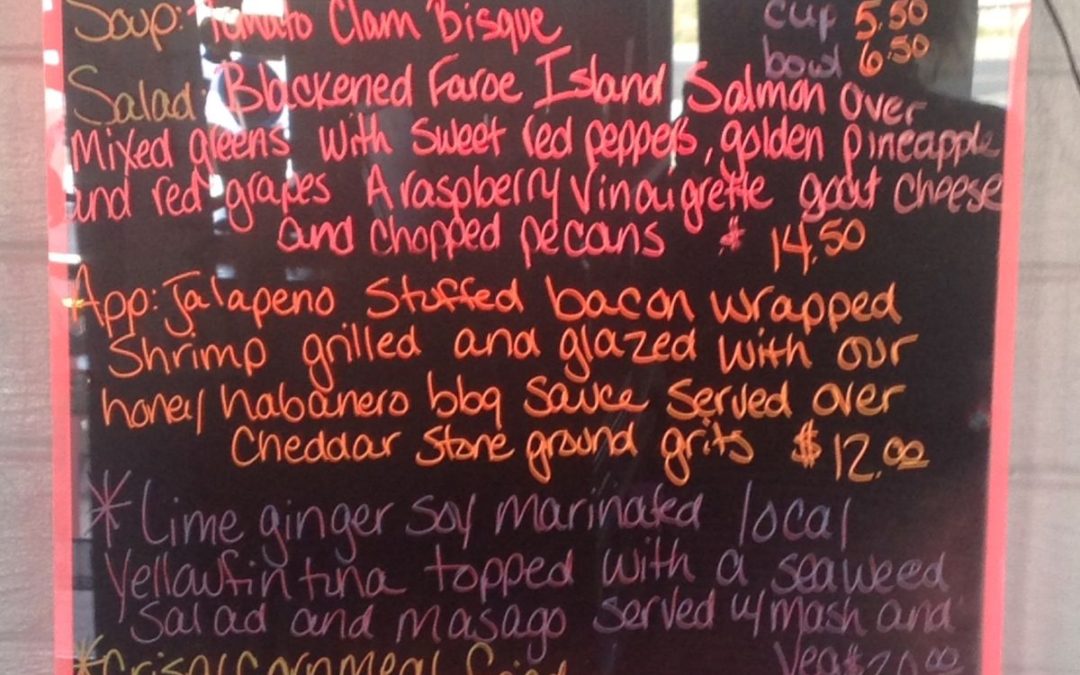 Soup: Tomato Clam Bisque cup 5.50
bowl 6.50
Salad: Blackened Faroe Island Salmon over
Mixed greens with sweet red peppers, golden pineapple
and red grapes A raspberry Vinaigrette goat cheese
and chopped pecans $ 14.50
App: Jalapeno Stuffed bacon wrapped
Shrimp grilled and glazed with our
honey habanero bbq sauce served over
Cheddar Stone ground grits $12.00
*Lime ginger soy marinated local
Yellowfin tuna topped with a seaweed
Salad and masago served w/ mash and
Veg $20.00
*Crispy Cornmeal